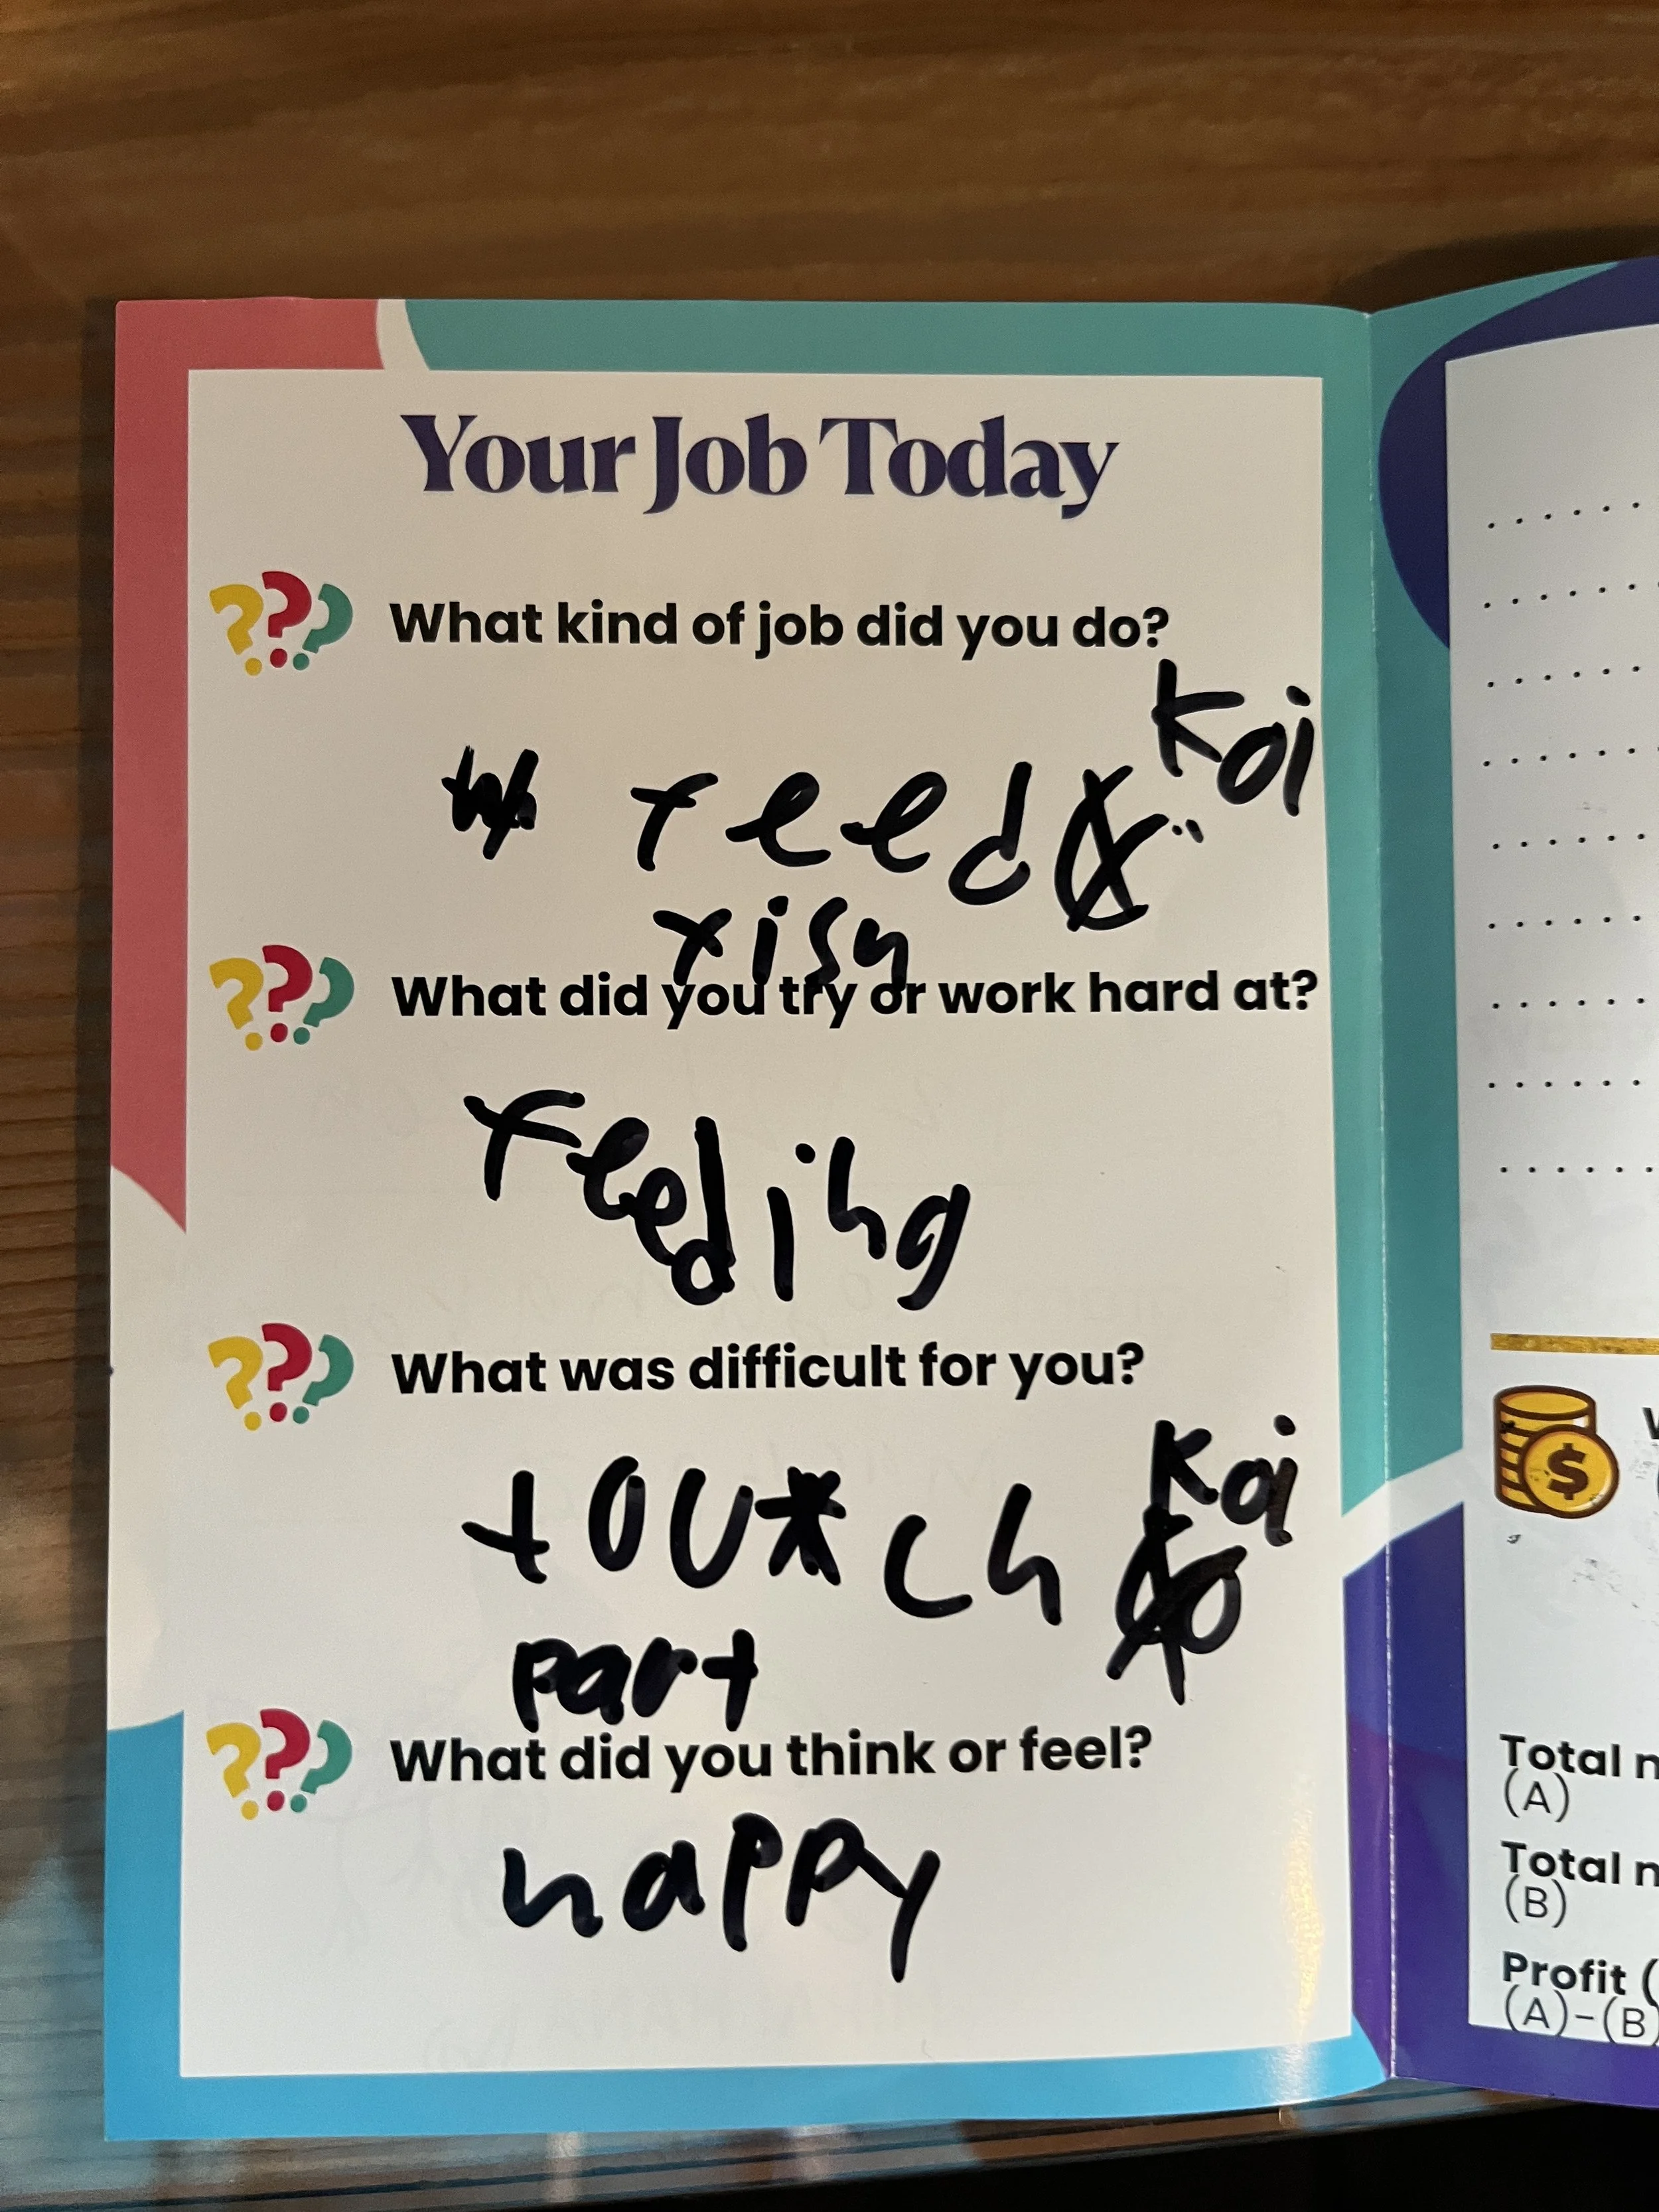 Your Job Today
??? What kind of job did you do?
feed Koi
fish
??? What did you try or work hard at?
feeding
??? What was difficult for you?
touch Koi
part
??? What did you think or feel?
happy
$
Total
(A)
Total
(B)
Profit (
(A)-(B)